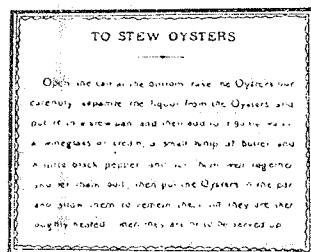 TO STEW OYSTERS
Open the can at the bottom take the Oysters out
carefully separate the liquor from the Oysters and
put it in a stew pan and then add to
a wineglass of cream, a small lump of butter and
a little black pepper and let them well together
and let them boil, then put the Oysters in the pan
and allow them to remain there till they are thor
oughly heated when they are to be served up